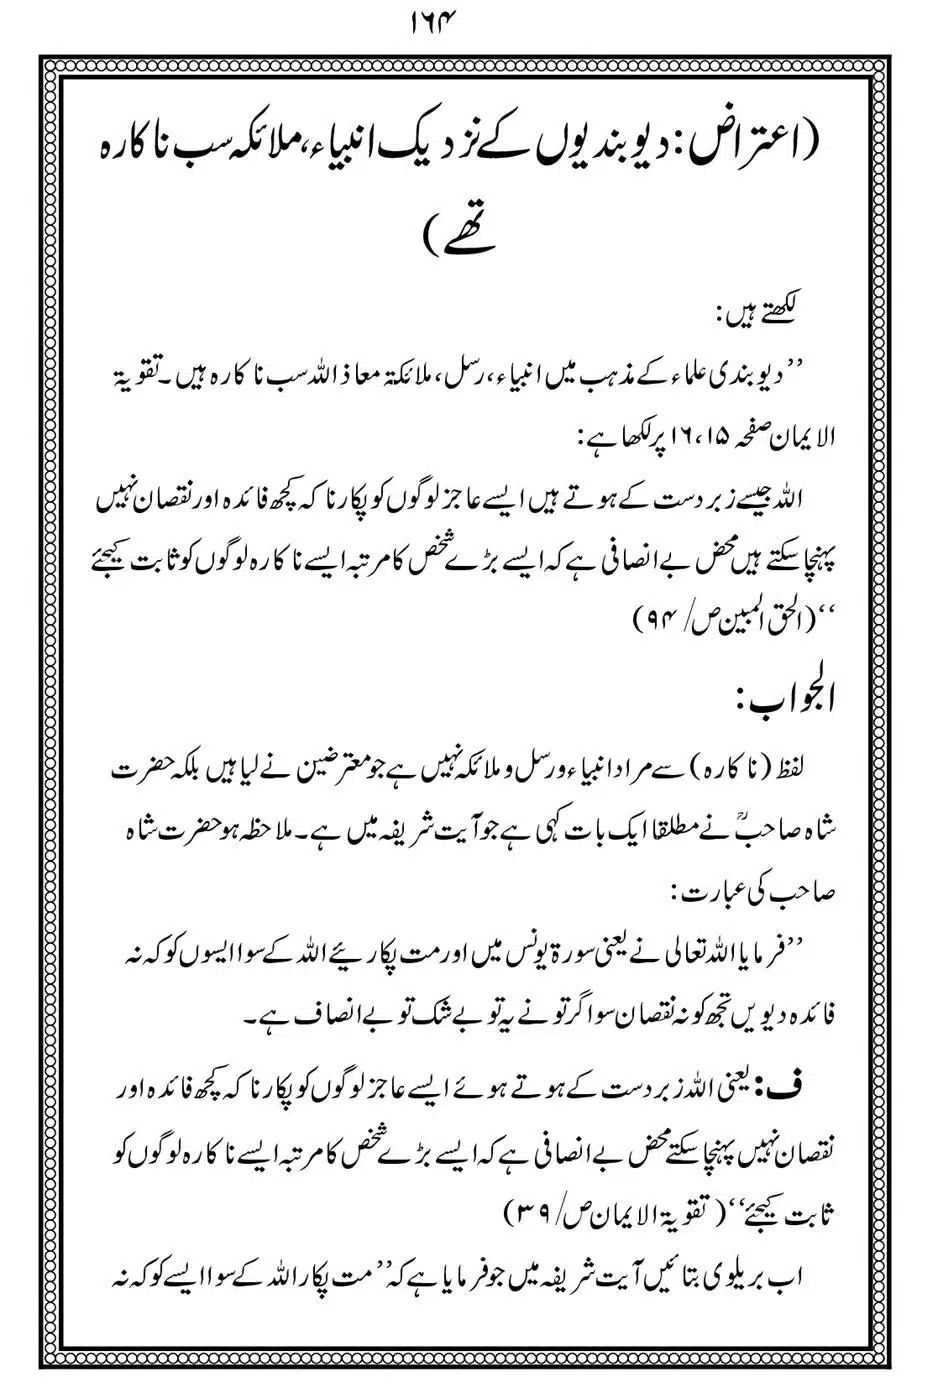 ۱۶۴
(اعتراض: دیوبندیوں کے نزدیک انبیاء، ملائکہ سب ناکارہ
تھے)
لکھتے ہیں:
’’دیوبندی علماء کے مذہب میں انبیاء، رسل، ملائکۃ معاذ اللہ سب ناکارہ ہیں۔ تقویۃ
الایمان صفحہ ۱۵، ۱۶ پر لکھا ہے:
اللہ جیسے زبردست کے ہوتے ہیں ایسے عاجز لوگوں کو پکارنا کہ کچھ فائدہ اور نقصان نہیں
پہنچا سکتے ہیں محض بے انصافی ہے کہ ایسے بڑے شخص کا مرتبہ ایسے ناکارہ لوگوں کو ثابت کیجئے
‘‘(الحق المبین ص/ ۹۴)
الجواب:
لفظ (ناکارہ) سے مراد انبیاء ورسل و ملائکہ نہیں ہے جو معترضین نے لیا ہیں بلکہ حضرت
شاہ صاحبؒ نے مطلقا ایک بات کہی ہے جو آیت شریفہ میں ہے۔ ملاحظہ ہو حضرت شاہ
صاحب کی عبارت:
’’فرمایا اللہ تعالی نے یعنی سورۃ یونس میں اور مت پکاریئے اللہ کے سوا ایسوں کو کہ نہ
فائدہ دیویں تجھ کو نہ نقصان سو اگر تو نے یہ تو بے شک تو بے انصاف ہے۔
ف: یعنی اللہ زبردست کے ہوتے ہوئے ایسے عاجز لوگوں کو پکارنا کہ کچھ فائدہ اور
نقصان نہیں پہنچا سکتے محض بے انصافی ہے کہ ایسے بڑے شخص کا مرتبہ ایسے ناکارہ لوگوں کو
ثابت کیجئے‘‘(تقویۃ الایمان ص/ ۳۹)
اب بریلوی بتائیں آیت شریفہ میں جو فرمایا ہے کہ ’’مت پکار اللہ کے سوا ایسے کو کہ نہ